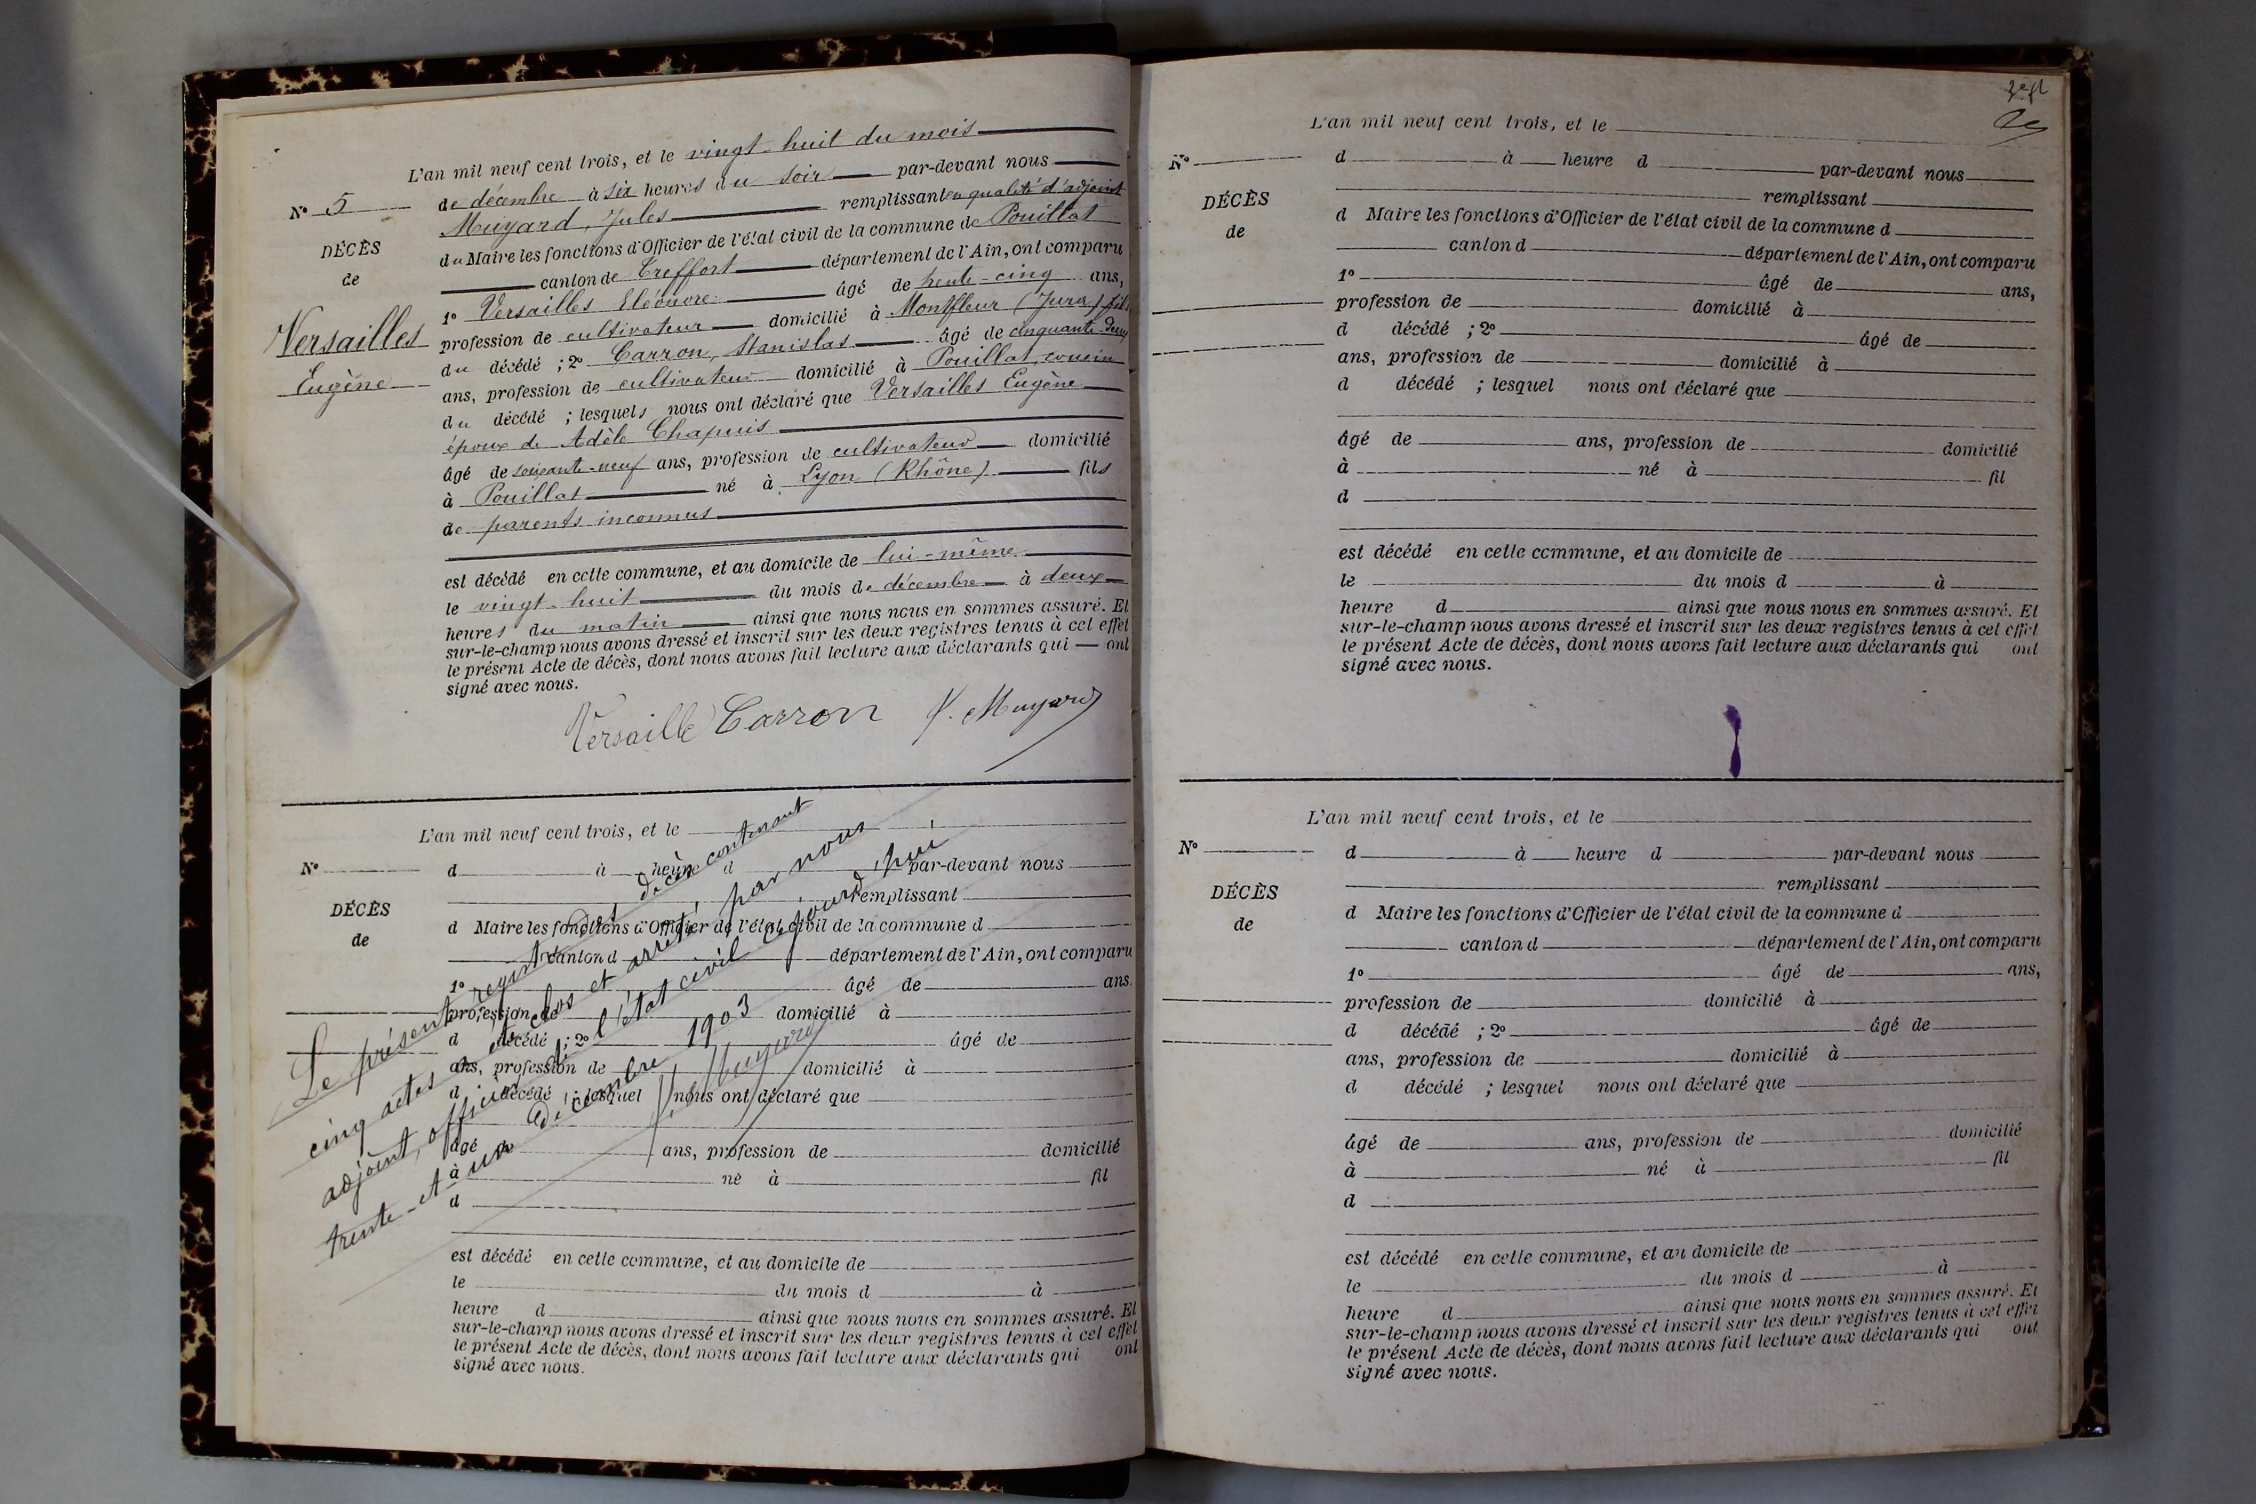 L'an mil neuf cent trois, et le vingt-huit du mois
N° 5
de décembre à six heures du soir par-devant nous
Muyard, Jules remplissant en qualité d'adjoint
DÉCÈS
du Maire les fonctions d'Officier de l'état civil de la commune de Pouillat
de
canton de Treffort département de l'Ain, ont comparu
1° Versailles Eléonore âgé de trente-cinq ans,
Versailles
profession de cultivateur domicilié à Montfleur (Jura) fils
Eugène
du décédé ; 2° Carron, Stanislas âgé de cinquante deux
ans, profession de cultivateur domicilié à Pouillat, cousin
du décédé ; lesquels nous ont déclaré que Versailles Eugène
époux de Adèle Chapuis
âgé de soixante-neuf ans, profession de cultivateur domicilié
à Pouillat né à Lyon (Rhône) fils
de parents inconnus
est décédé en cette commune, et au domicile de lui-même
le vingt-huit du mois de décembre à deux
heures du matin ainsi que nous nous en sommes assuré. Et
sur-le-champ nous avons dressé et inscrit sur les deux registres tenus à cet effet
le présent Acte de décès, dont nous avons fait lecture aux déclarants qui ont
signé avec nous.
Versaille Carron J. Muyard
L'an mil neuf cent trois, et le
N°
d à heure d par-devant nous
remplissant
DÉCÈS
d Maire les fonctions d'Officier de l'état civil de la commune d
de
canton d département de l'Ain, ont comparu
1° âgé de ans.
profession de domicilié à
d décédé ; 2° âgé de
ans, profession de domicilié à
d décédé ; lesquel nous ont déclaré que
âgé ans, profession de domicilié
à né à fil
d
est décédé en cette commune, et au domicile de
le du mois d à
heure d ainsi que nous nous en sommes assuré. Et
sur-le-champ nous avons dressé et inscrit sur les deux registres tenus à cet effet
le présent Acte de décès, dont nous avons fait lecture aux déclarants qui ont
signé avec nous.
Le présent registre des décès contenant
cinq actes a été clos et arrêté par nous
adjoint, officier de l'état civil cejourd'hui
trente-et-un décembre 1903
J. Muyard
L'an mil neuf cent trois, et le
N°
d à heure d par-devant nous
remplissant
DÉCÈS
d Maire les fonctions d'Officier de l'état civil de la commune d
de
canton d département de l'Ain, ont comparu
1° âgé de ans,
profession de domicilié à
d décédé ; 2° âgé de
ans, profession de domicilié à
d décédé ; lesquel nous ont déclaré que
âgé de ans, profession de domicilié
à né à fil
d
est décédé en cette commune, et au domicile de
le du mois d à
heure d ainsi que nous nous en sommes assuré. Et
sur-le-champ nous avons dressé et inscrit sur les deux registres tenus à cet effet
le présent Acte de décès, dont nous avons fait lecture aux déclarants qui ont
signé avec nous.
L'an mil neuf cent trois, et le
N°
d à heure d par-devant nous
remplissant
DÉCÈS
d Maire les fonctions d'Officier de l'état civil de la commune d
de
canton d département de l'Ain, ont comparu
1° âgé de ans,
profession de domicilié à
d décédé ; 2° âgé de
ans, profession de domicilié à
d décédé ; lesquel nous ont déclaré que
âgé de ans, profession de domicilié
à né à fil
d
est décédé en cette commune, et au domicile de
le du mois d à
heure d ainsi que nous nous en sommes assuré. Et
sur-le-champ nous avons dressé et inscrit sur les deux registres tenus à cet effet
le présent Acte de décès, dont nous avons fait lecture aux déclarants qui ont
signé avec nous.